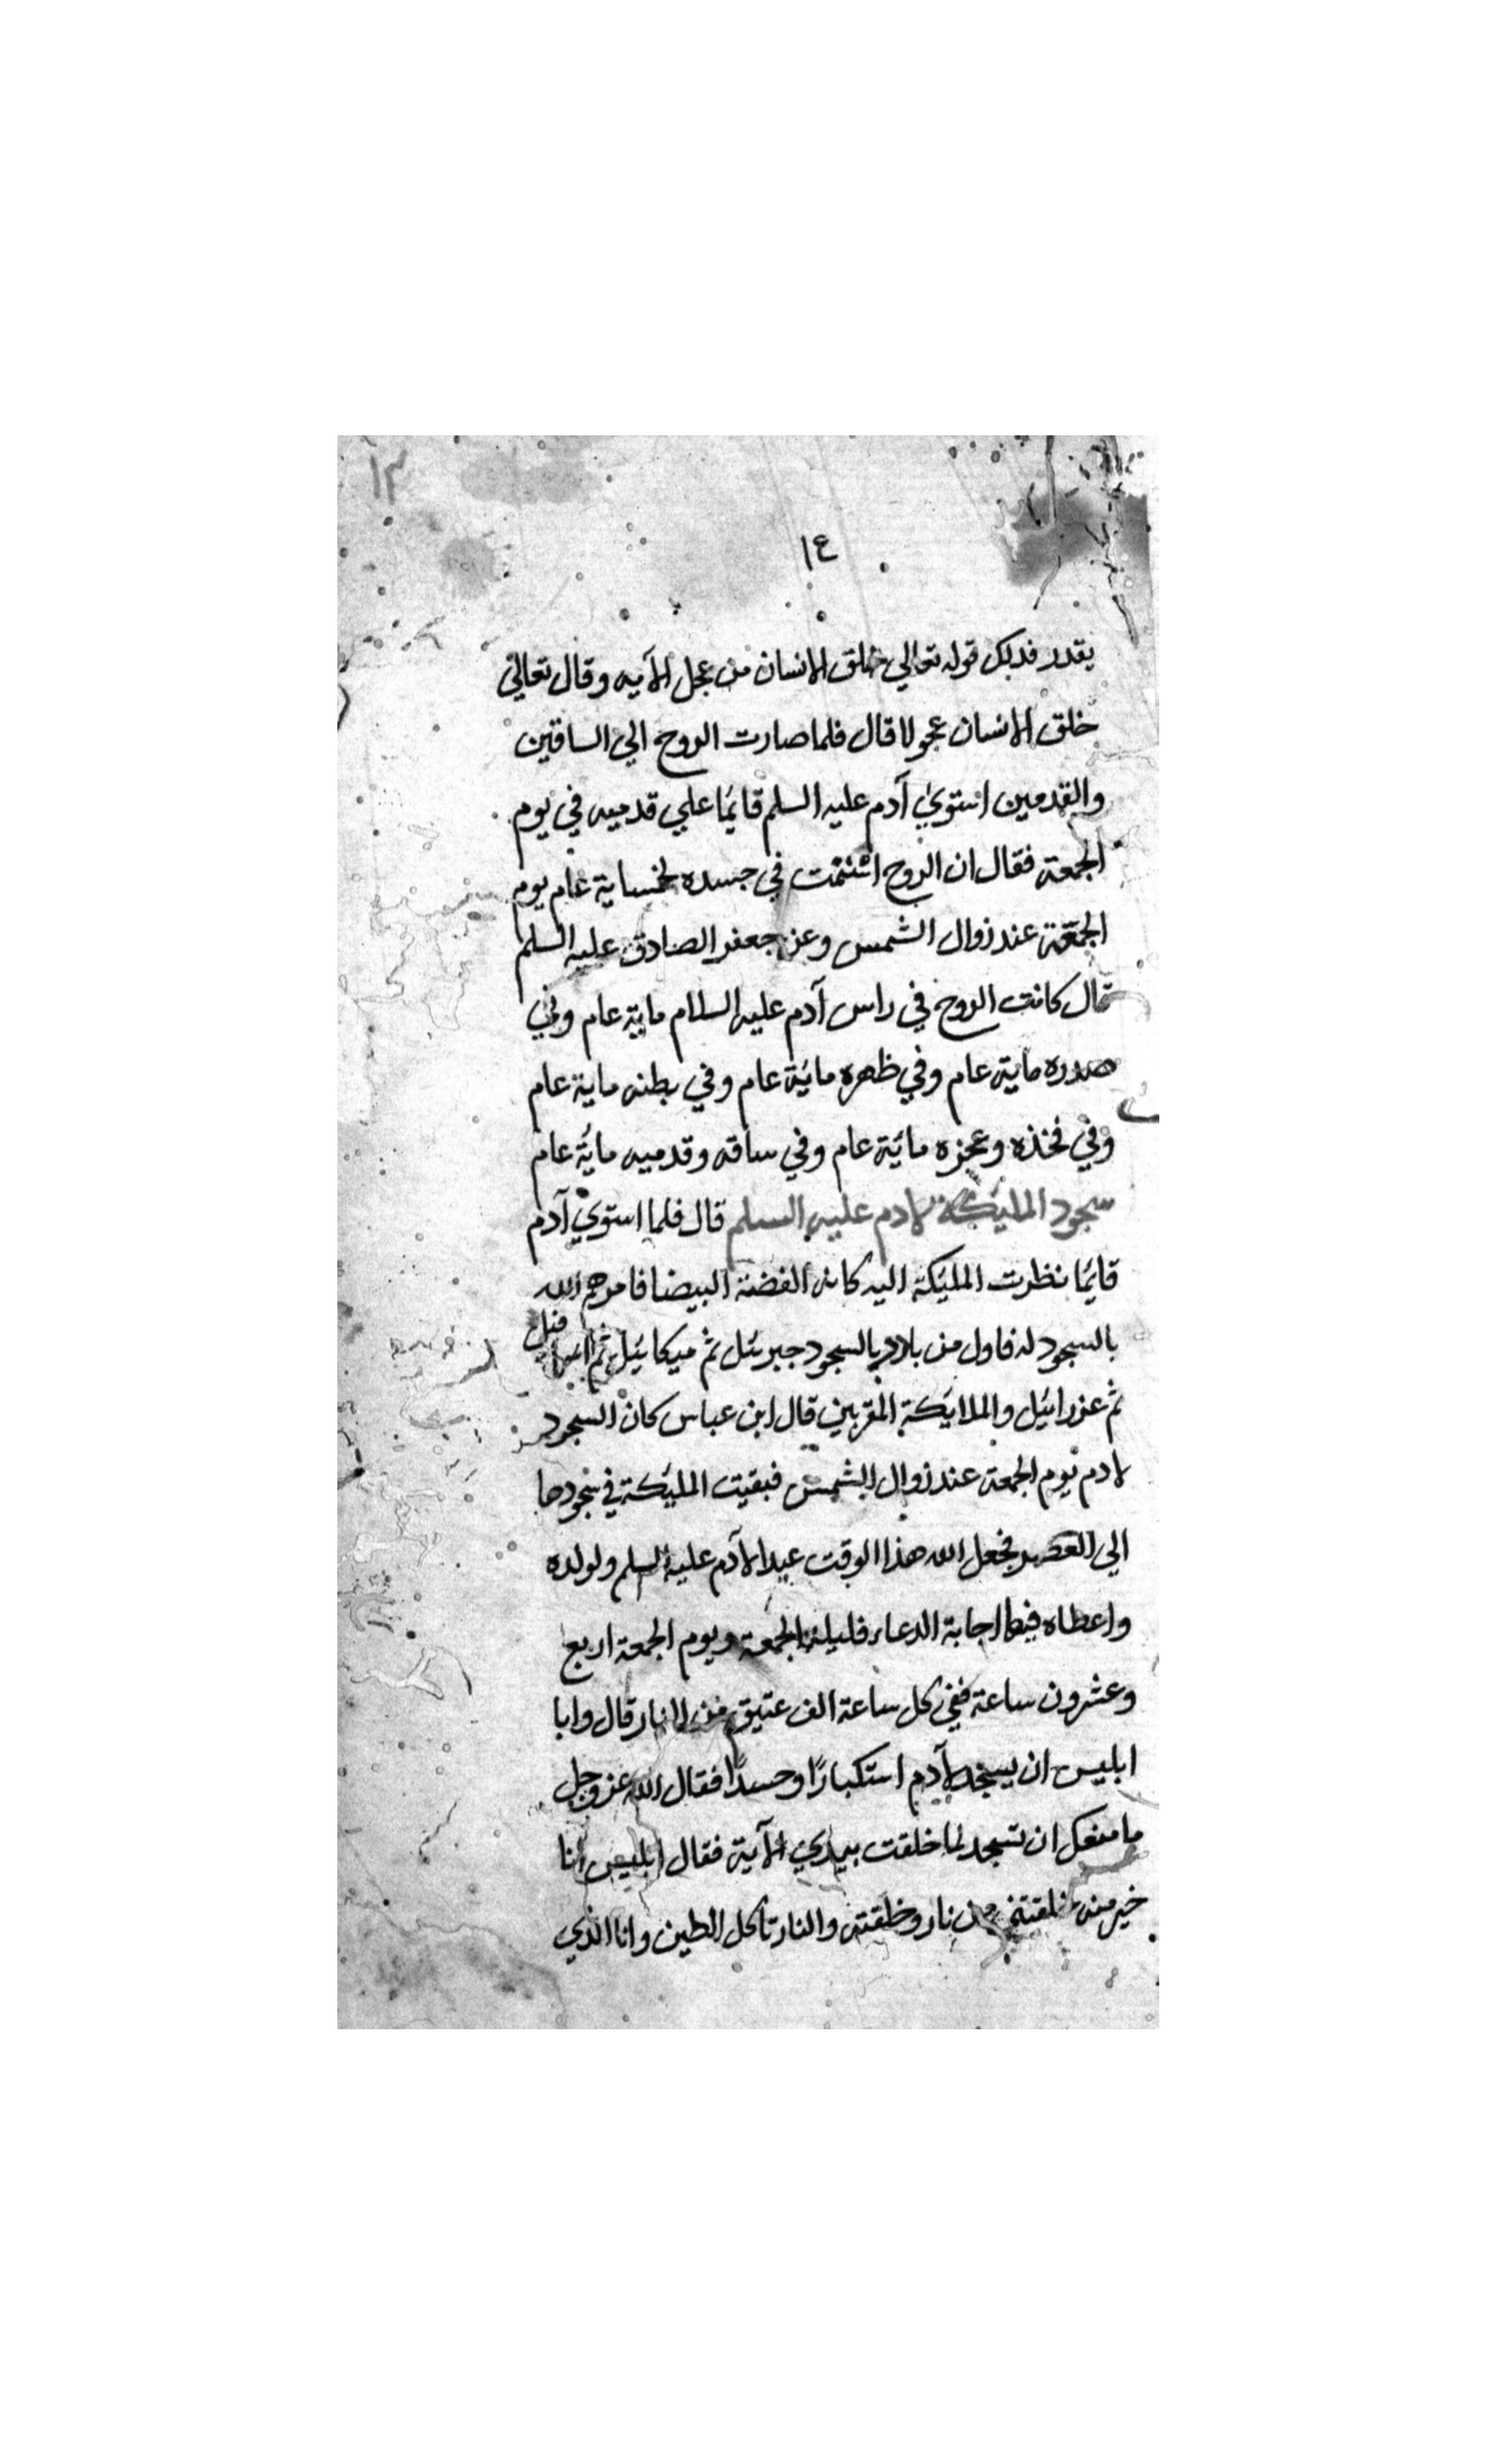 ١٣
١٤
يقدر فدلك قوله تعالي خلق الانسان من عجل الآيه وقال تعالي
خلق الانسان عجولا قال فلما صارت الروح الي الساقين
والقدمين استوي آدم عليه السلم قايمًا علي قدميه في يوم
الجمعة فقال ان الروح في جسده لخمساية عام يوم
الجمعة عند زوال الشمس وعن جعفر الصادق عليه السلم
قال كانت الروح في راس آدم عليه السلام ماية عام وفي
صدره ماية عام وفي ظهره مائة عام وفي بطنه ماية عام
وفي فخذه وعجزه مائة عام وفي ساقه وقدميه مائة عام
سجود المليكة لادم عليه السلم قال فلما استوي آدم
قايمًا نظرت المليكة اليه كانه الفضة البيضا فامرهم الله
بالسجود له فاول من بادر بالسجود جبرئل ثم ميكائيل ثم
ثم عزرائيل والملايكة المقربين قال ابن عباس كان السجود
لادم يوم الجمعة عند زوال الشمس فبقيت المليكة في سجودها
الي العصر فجعل الله هذا الوقت عيدا لآدم عليه السلم ولولده
واعطاه فيها اجابة الدعاء فليلة الجمعة ويوم الجمعة اربع
وعشرون ساعة ففي كل ساعة الف عتيق من النار قال وابا
ابليس ان يسجد لآدم استكبارًا وحسدًا فقال الله عز وجل
ما منعك ان تسجد لما خلقت بيدي الآية فقال ابليس انا
خير منه خلقتني من نار وخلقته والنار تاكل الطين وانا الذي